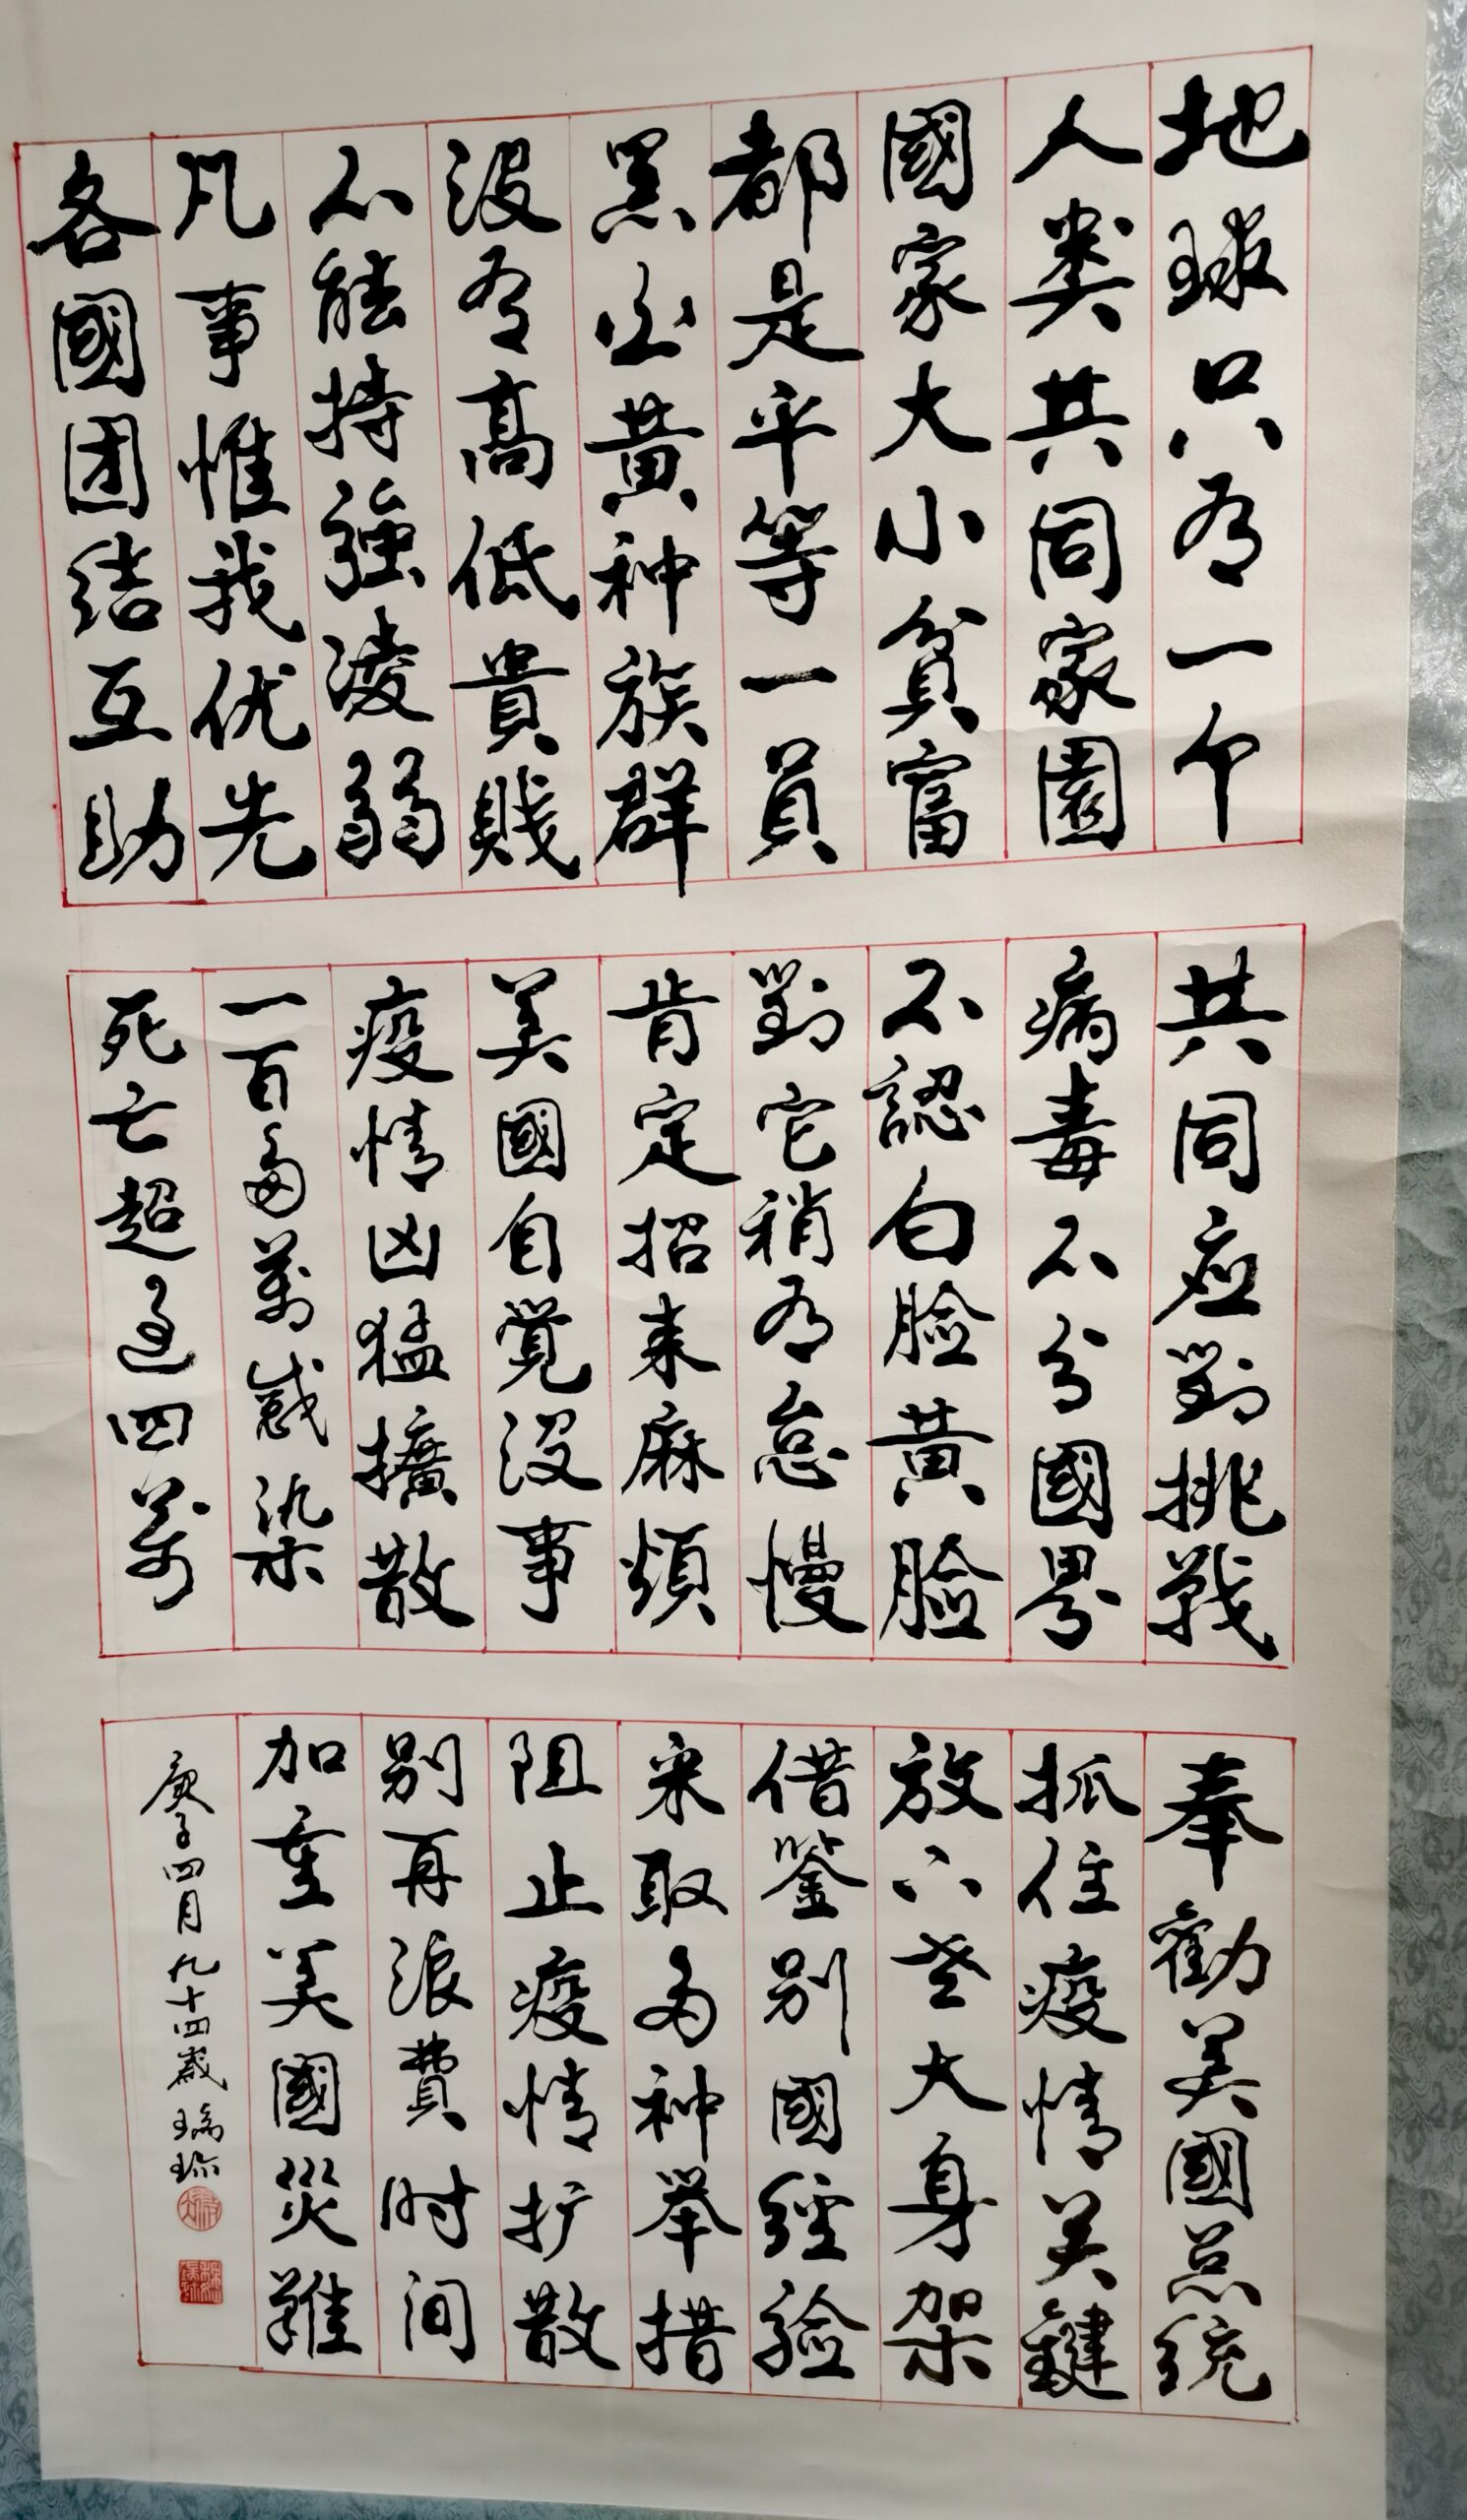 地球只有一个
人类共同家園
國家大小貧富
都是平等一員
黑白黄种族群
没有高低貴賤
不能持強凌弱
凡事惟我优先
各國团结互助
共同应對挑戰
病毒不分國界
不認白脸黄脸
對它稍有怠慢
肯定招来麻煩
美國自覚没事
疫情凶猛擴散
一百多萬感染
死亡超過四萬
奉勸美國总统
抓住疫情关鍵
放下老大身架
借鉴别國經验
采取多种举措
阻止疫情扩散
别再浪費时间
加重美國災難
庚子四月九十四歲